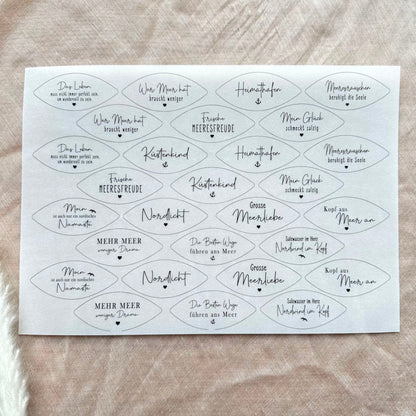 Das Leben
muss nicht immer perfekt sein,
um wundervoll zu sein.
Wer Meer hat
braucht weniger
Heimathafen
Meeresrauschen
beruhigt die Seele
Wer Meer hat
braucht weniger
Frische
MEERESFREUDE
Mein Glück
schmeckt salzig
Das Leben
muss nicht immer perfekt sein,
um wundervoll zu sein.
Küstenkind
Heimathafen
Meeresrauschen
beruhigt die Seele
Frische
MEERESFREUDE
Küstenkind
Mein Glück
schmeckt salzig
Mein
ist auch nur ein nordisches
Namaste
Nordlicht
Grosse
Meerliebe
Kopf aus
Meer an
MEHR MEER
weniger Drama
Die Besten Wege
führen ans Meer
Salzwasser im Herz
Nordwind im Kopf
Mein
ist auch nur ein nordisches
Namaste
Nordlicht
Grosse
Meerliebe
Kopf aus
Meer an
MEHR MEER
weniger Drama
Die Besten Wege
führen ans Meer
Salzwasser im Herz
Nordwind im Kopf